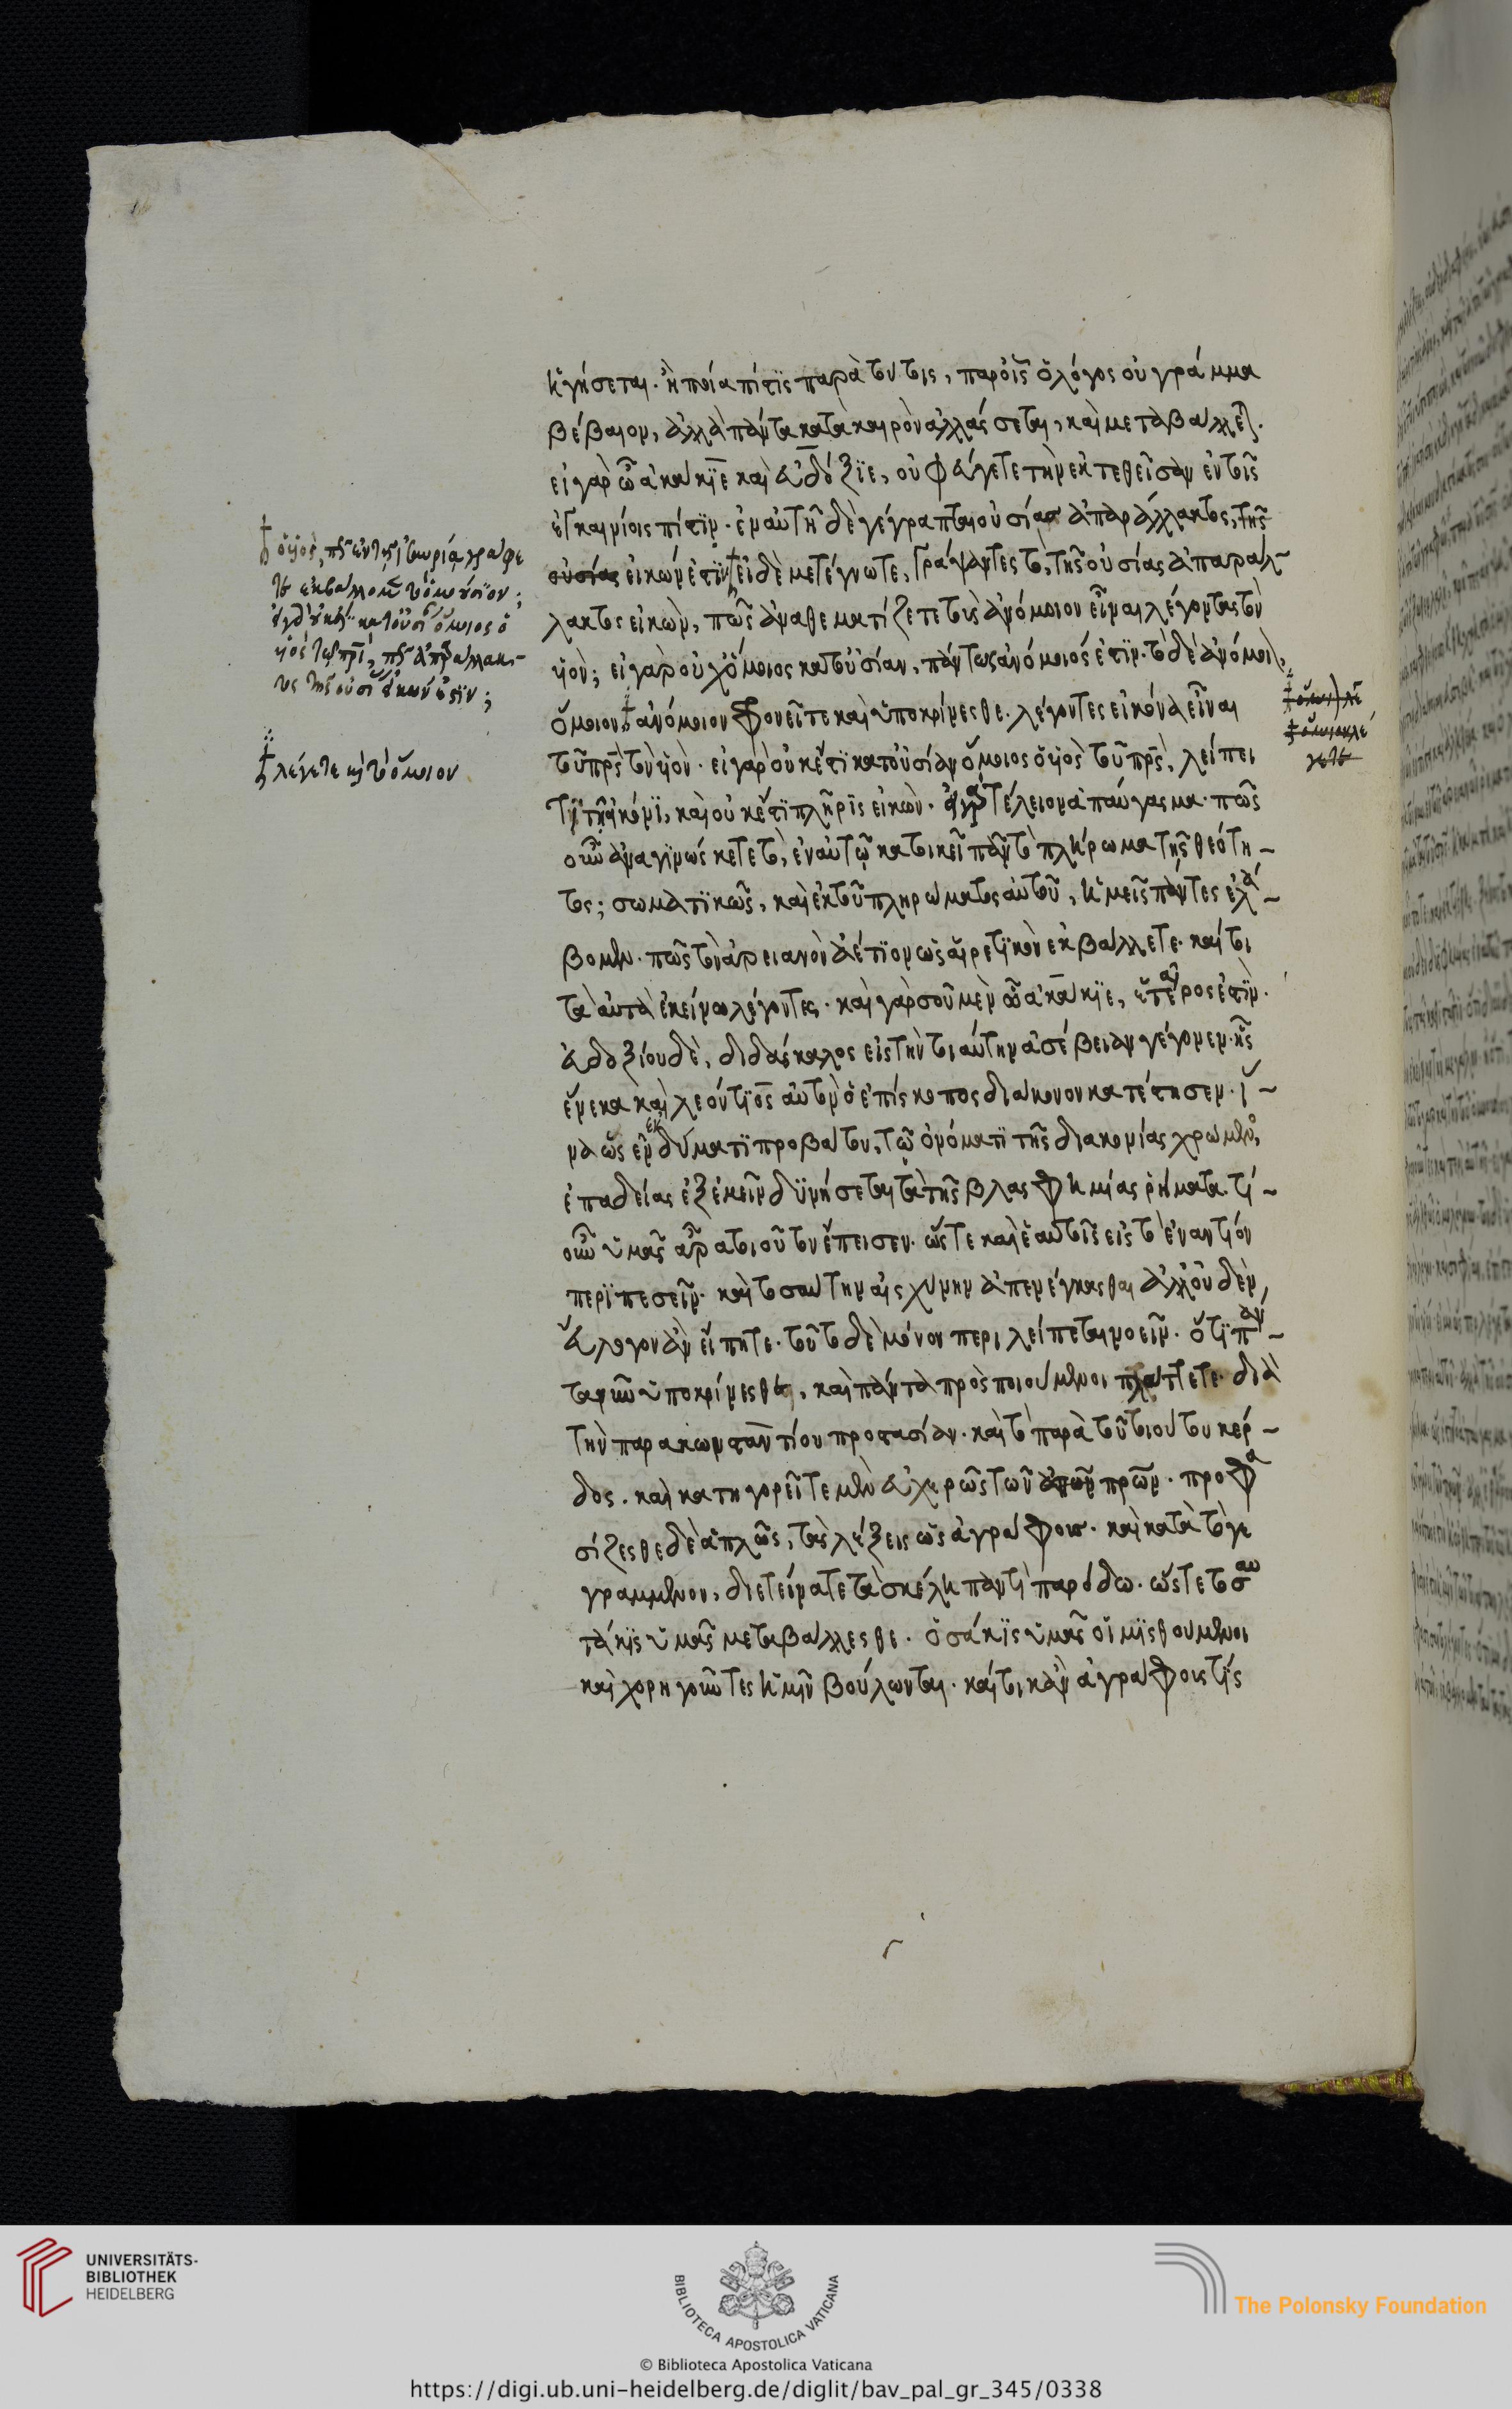 ἡγήσεται. ἢ ποία πίστις παρὰ τούτοις, παρ' οἷς ὁ λόγος οὐ γράμμα
βέβαιον, ἀλλὰ πάντα κατὰ καιρὸν ἀλλάσσεται, καὶ μεταβάλλεται.
εἰ γὰρ ὦ ἀκάκιε καὶ εὐδόξιε, οὐ φεύγετε τὴν ἐκτεθεῖσαν ἐν τοῖς
ἐγκαινίοις πίστιν. ἐν αὐτῇ δὲ γέγραπται οὐσίας ἀπαράλλακτος, τῆς
οὐσίας εἰκών ἐστιν εἰ δὲ μετέγνωτε, γράψαντες τὸ, τῆς οὐσίας ἀπαράλ-
λακτος εἰκὼν, πῶς ἀναθεματίζετε τοὺς ἀνόμοιον εἶναι λέγοντας τὸν
υἱόν; εἰ γὰρ οὐχ ὅμοιος κατ' οὐσίαν, πάντως ἀνόμοιός ἐστιν. τὸ δὲ ἀνόμοιον,
ὅμοιον ἀνόμοιον φρονεῖτε καὶ ὑποκρίνεσθε. λέγοντες εἰκόνα εἶναι
τοῦ πρς τὸν υἱόν. εἰ γὰρ οὐκ ἔστι κατ' οὐσίαν ὅμοιος ὁ υἱὸς τοῦ πρς, λείπει
τι τῇ εἰκόνι, καὶ οὐκ ἔστι πλήρις εἰκὼν. οὐδὲ τέλειον ἀπαύγασμα. πῶς
οὖν ἀναγινώσκετε τὸ, ἐν αὐτῷ κατοικεῖ πᾶν τὸ πλήρωμα τῆς θεότη-
τος; σωματικῶς, καὶ ἐκ τοῦ πληρώματος αὐτοῦ, ἡμεῖς πάντες ἐλά-
βομεν. πῶς τὸν ἀρειανὸν ἀέτιον ὡς αἱρετικὸν ἐκβάλλετε. καίτοι
τὰ αὐτὰ ἐκείνῳ λέγοντες. καὶ γὰρ σοῦ μὲν ὦ ἀκάκιε, ἑταῖρος ἐστίν.
εὐδοξίου δὲ, διδάσκαλος εἰς τὴν τοιαύτην ἀσέβειαν γέγονεν. ἧς
ἕνεκα καὶ λεόντιος αὐτὸν ὁ ἐπίσκοπος διάκονον κατέστησεν. ἵ-
να ὡς ἐν ἐνδύματι προβάτου, τῷ ὀνόματι τῆς διακονίας χρώμενος,
ἐπ' ἀδείας ἐξεμεῖν δυνήσεται τὰ τῆς βλασφημίας ῥήματα. τί
οὖν ὑμᾶς ἆρα τοιοῦτον ἔπεισεν. ὥστε καὶ ἑαυτοῖς εἰς τὸ ἐναντίον
περιπεσεῖν. καὶ τοσαύτην αἰσχύνην ἀπενέγκασθαι ἀλλ' οὐδὲν,
εὔλογον ἂν εἴπητε. τοῦτο δὲ μόνον περιλείπεται νοεῖν. ὅτι πάν-
τα νῦν ὑποκρίνεσθε, καὶ πάντα προσποιούμενοι πλάττετε διὰ
τὴν παρὰ κωνσταντίου προστασίαν. καὶ τὸ παρὰ τοῦ τοιούτου κέρ-
δος. καὶ κατηγορεῖτε μὲν εὐχερῶς τῶν πρων. προφα
σίζεσθε δὲ ἁπλῶς, τὰς λέξεις ὡς ἀγράφους. καὶ κατὰ τὸ γε
γραμμένον, διετείνατε τὰ σκέλη παντὶ παρόδῳ. ὥστε τοσαυ
τάκις ὑμᾶς μεταβάλλεσθε. ὁσάκις ὑμᾶς οἱ μισθούμενοι
καὶ χορηγοῦντες ὑμῖν βούλωνται. καίτοι κἂν ἀγράφοις τις
ὁ υἱός, πῶς ἐν τῇ ἰσαυρίᾳ γράφε
τε ἐκβάλλομεν τὸ ὁμοούσιον;
εἰ γὰρ οὐκ ἔστι κατ' οὐσίαν ὅμοιος ὁ
υἱὸς τῷ πρὶ, πῶς ἀπαράλλακ-
τος τῆς οὐσίας εἰκών ἐστιν;
λέγετε εἰς τὸ ὅμοιον
ὅμοιον λέ
γετε
UNIVERSITÄTS-
BIBLIOTHEK
HEIDELBERG
BIBLIOTECA APOSTOLICA VATICANA
© Biblioteca Apostolica Vaticana
The Polonsky Foundation
https://digi.ub.uni-heidelberg.de/diglit/bav_pal_gr_345/0338